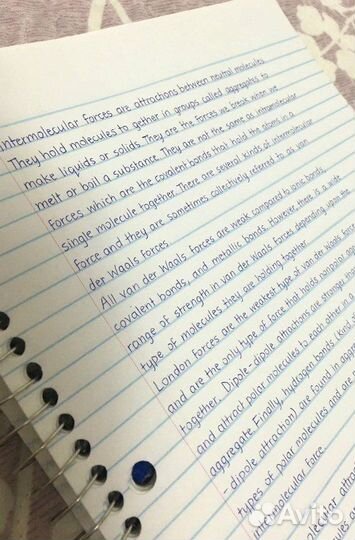 Intermolecular forces are attractions between neutral molecules
They hold molecules to gether in groups called aggregates to
make liquids or solids. They are the forces we break when we
melt or boil a substance. They are not the same as intramolecular
forces which are the covalent bonds that hold the atoms in a
single molecule together. There are several kinds of intermolecular
force and they are sometimes collectively referred to as van
der Waals forces.
All van der Waals forces are weak compared to ionic bonds,
covalent bonds, and metallic bonds. However there is a wide
range of strength in van der Waals forces depending upon the
type of molecules they are holding together.
London forces are the weakest type of van der Waals force
and are the only type of force that holds nonpolar
together. Dipole-dipole attractions are stronger
and attract polar molecules to each other in
aggregate. Finally, hydrogen bonds (kind of
-dipole attraction) are found in
types of polar molecules and are
intermolecular force.
molecular
Avito